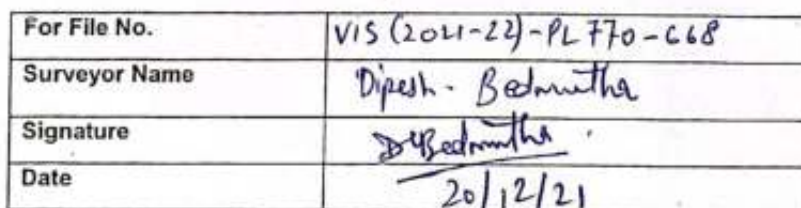 For File No. VIS (2021-22)-PL770-668
Surveyor Name Dipesh. Bedmutha
Signature DBedmutha.
Date 20/12/21